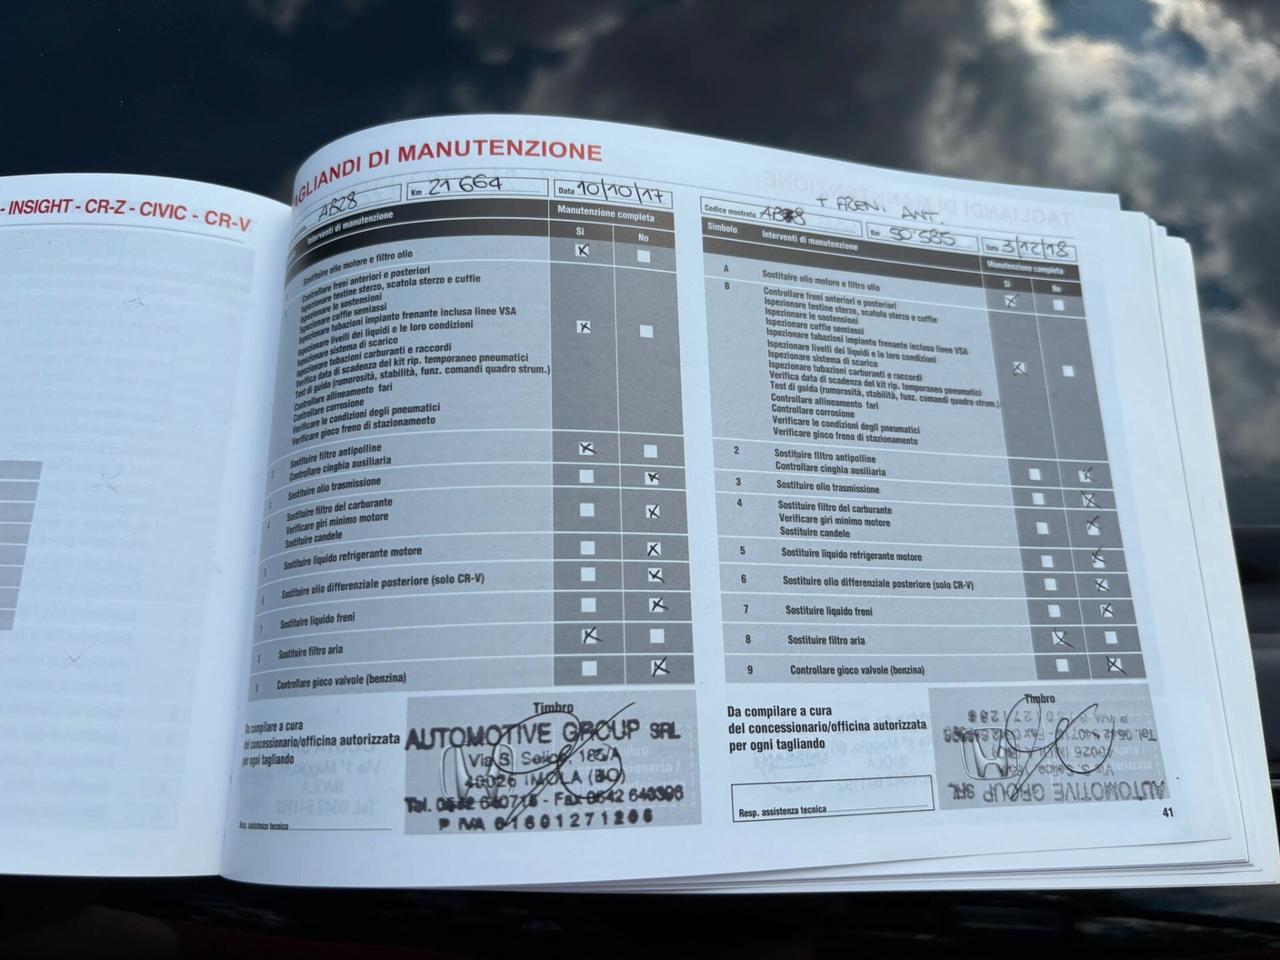 - INSIGHT - CR-Z - CIVIC - CR-V
AGLIANDI DI MANUTENZIONE
AB28
Km 21 664
Data 10/10/17
Interventi di manutenzione
Manutenzione completa
Si
No
Sostituire olio motore e filtro olio
Controllare freni anteriori e posteriori
Ispezionare testine sterzo, scatola sterzo e cuffie
Ispezionare le sostensioni
Ispezionare cuffie semiassi
Ispezionare tubazioni impianto frenante inclusa linee VSA
Ispezionare livelli dei liquidi e le loro condizioni
Ispezionare sistema di scarico
Ispezionare tubazioni carburanti e raccordi
Verifica data di scadenza del kit rip. temporaneo pneumatici
Test di guida (rumorosità, stabilità, funz. comandi quadro strum.)
Controllare allineamento fari
Controllare corrosione
Verificare le condizioni degli pneumatici
Verificare gioco freno di stazionamento
Sostituire filtro antipolline
Controllare cinghia ausiliaria
Sostituire olio trasmissione
Sostituire filtro del carburante
Verificare giri minimo motore
Sostituire candele
Sostituire liquido refrigerante motore
Sostituire olio differenziale posteriore (solo CR-V)
Sostituire liquido freni
Sostituire filtro aria
Controllare gioco valvole (benzina)
Da compilare a cura
del concessionario/officina autorizzata
per ogni tagliando
Resp. assistenza tecnica
Timbro
AUTOMOTIVE GROUP SRL
Via S. Selice, 185/A
40026 IMOLA (BO)
Tel. 0542 640718 - Fax 0542 640396
P IVA 01601271206
+ FRENI ANT
Codice mostrato
Km 50'585
Data 3/12/18
Simbolo
Interventi di manutenzione
Manutenzione completa
Si
No
A
Sostituire olio motore e filtro olio
B
Controllare freni anteriori e posteriori
Ispezionare testine sterzo, scatola sterzo e cuffie
Ispezionare le sostensioni
Ispezionare cuffie semiassi
Ispezionare tubazioni impianto frenante inclusa linee VSA
Ispezionare livelli dei liquidi e le loro condizioni
Ispezionare sistema di scarico
Ispezionare tubazioni carburanti e raccordi
Verifica data di scadenza del kit rip. temporaneo pneumatici
Test di guida (rumorosità, stabilità, funz. comandi quadro strum.)
Controllare allineamento fari
Controllare corrosione
Verificare le condizioni degli pneumatici
Verificare gioco freno di stazionamento
2
Sostituire filtro antipolline
Controllare cinghia ausiliaria
3
Sostituire olio trasmissione
4
Sostituire filtro del carburante
Verificare giri minimo motore
Sostituire candele
5
Sostituire liquido refrigerante motore
6
Sostituire olio differenziale posteriore (solo CR-V)
7
Sostituire liquido freni
8
Sostituire filtro aria
9
Controllare gioco valvole (benzina)
Da compilare a cura
del concessionario/officina autorizzata
per ogni tagliando
Resp. assistenza tecnica
Timbro
AUTOMOTIVE GROUP SRL
41